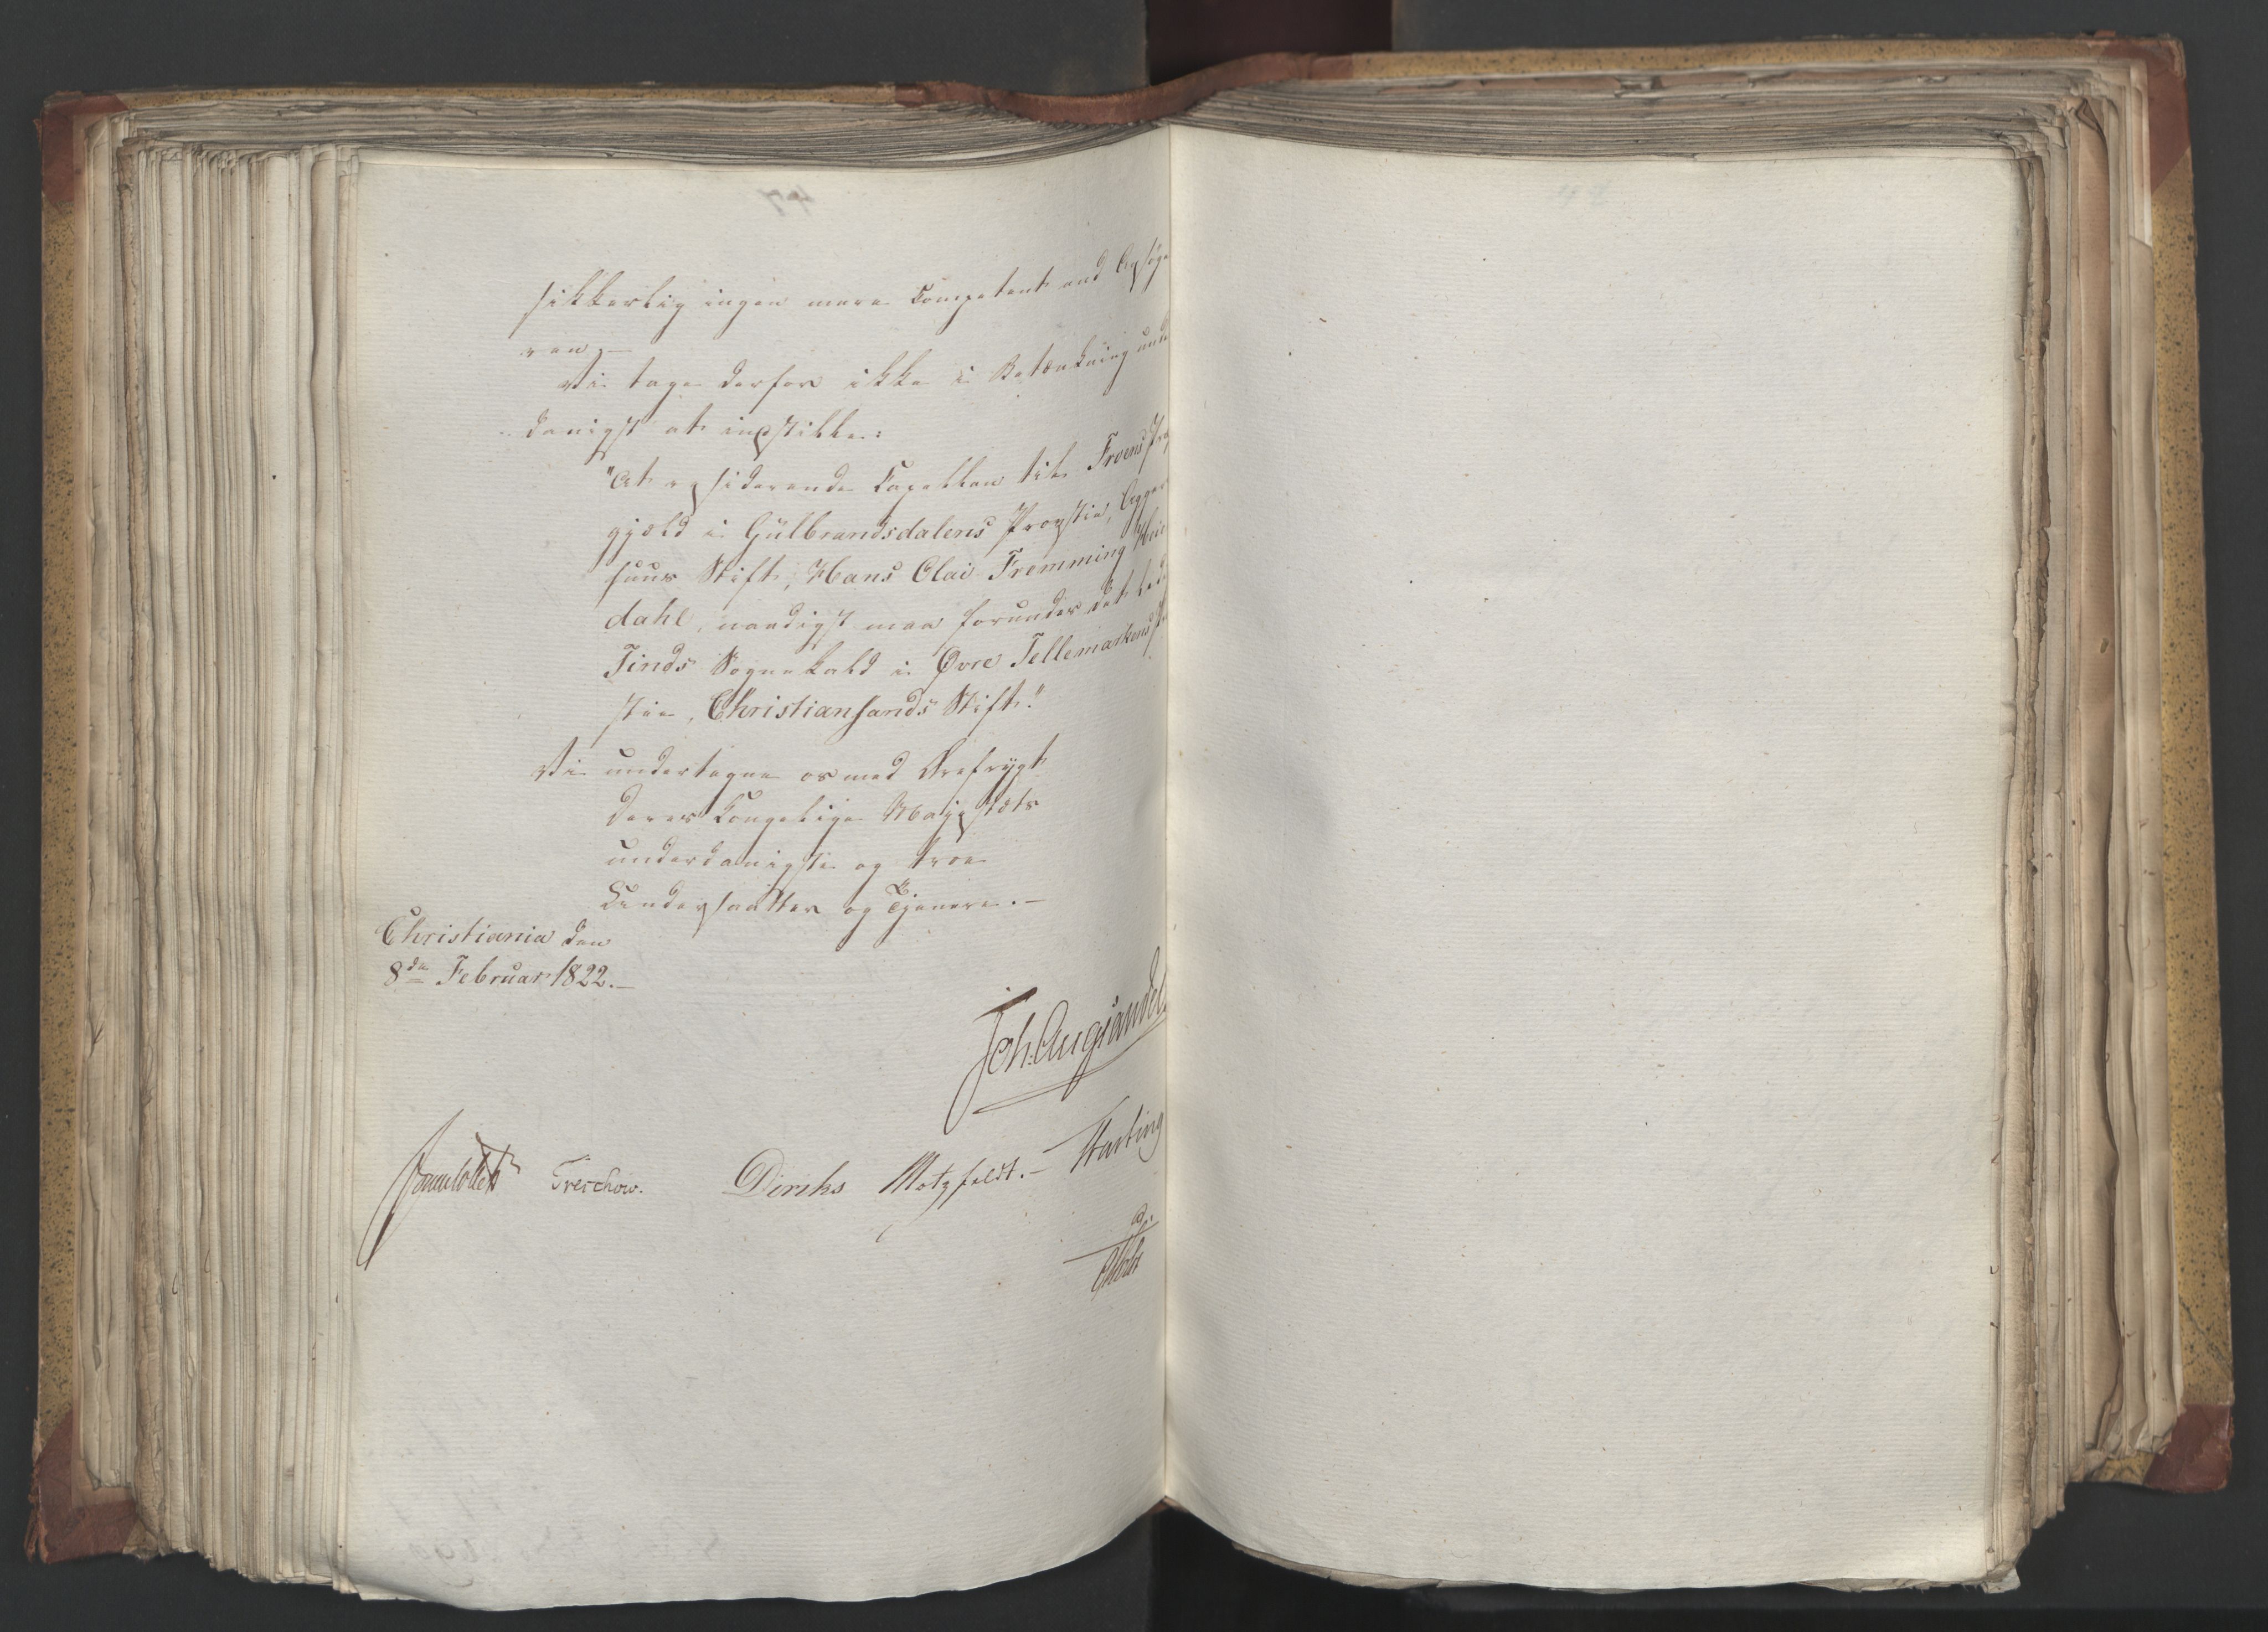 sikkerlig ingen mere Competent end Ansøge
ren.—
Vi tage derfor ikke i Betænkning unde
danigst at indstille:
"At residerende Capellan til Froens Præ
gjæld i Gulbrandsdalens Provstie, Agger
huus Stift, Hans Olai Fremming
dahl, naadigst maa forundes det led
Tinds Sognekald i Øvre Tellemarkens Pro
stie, Christiansands Stift."
Vi undertegne os med Ærefrygt
Deres Kongelige Majestæts
underdanigste og troe
Undersaatter og Tjenere.—
Christiania den
8de Februar 1822.—
Joh. Aug. Sandel
Sommerhielm? Treschow. Diriks Motzfeldt.— Fasting